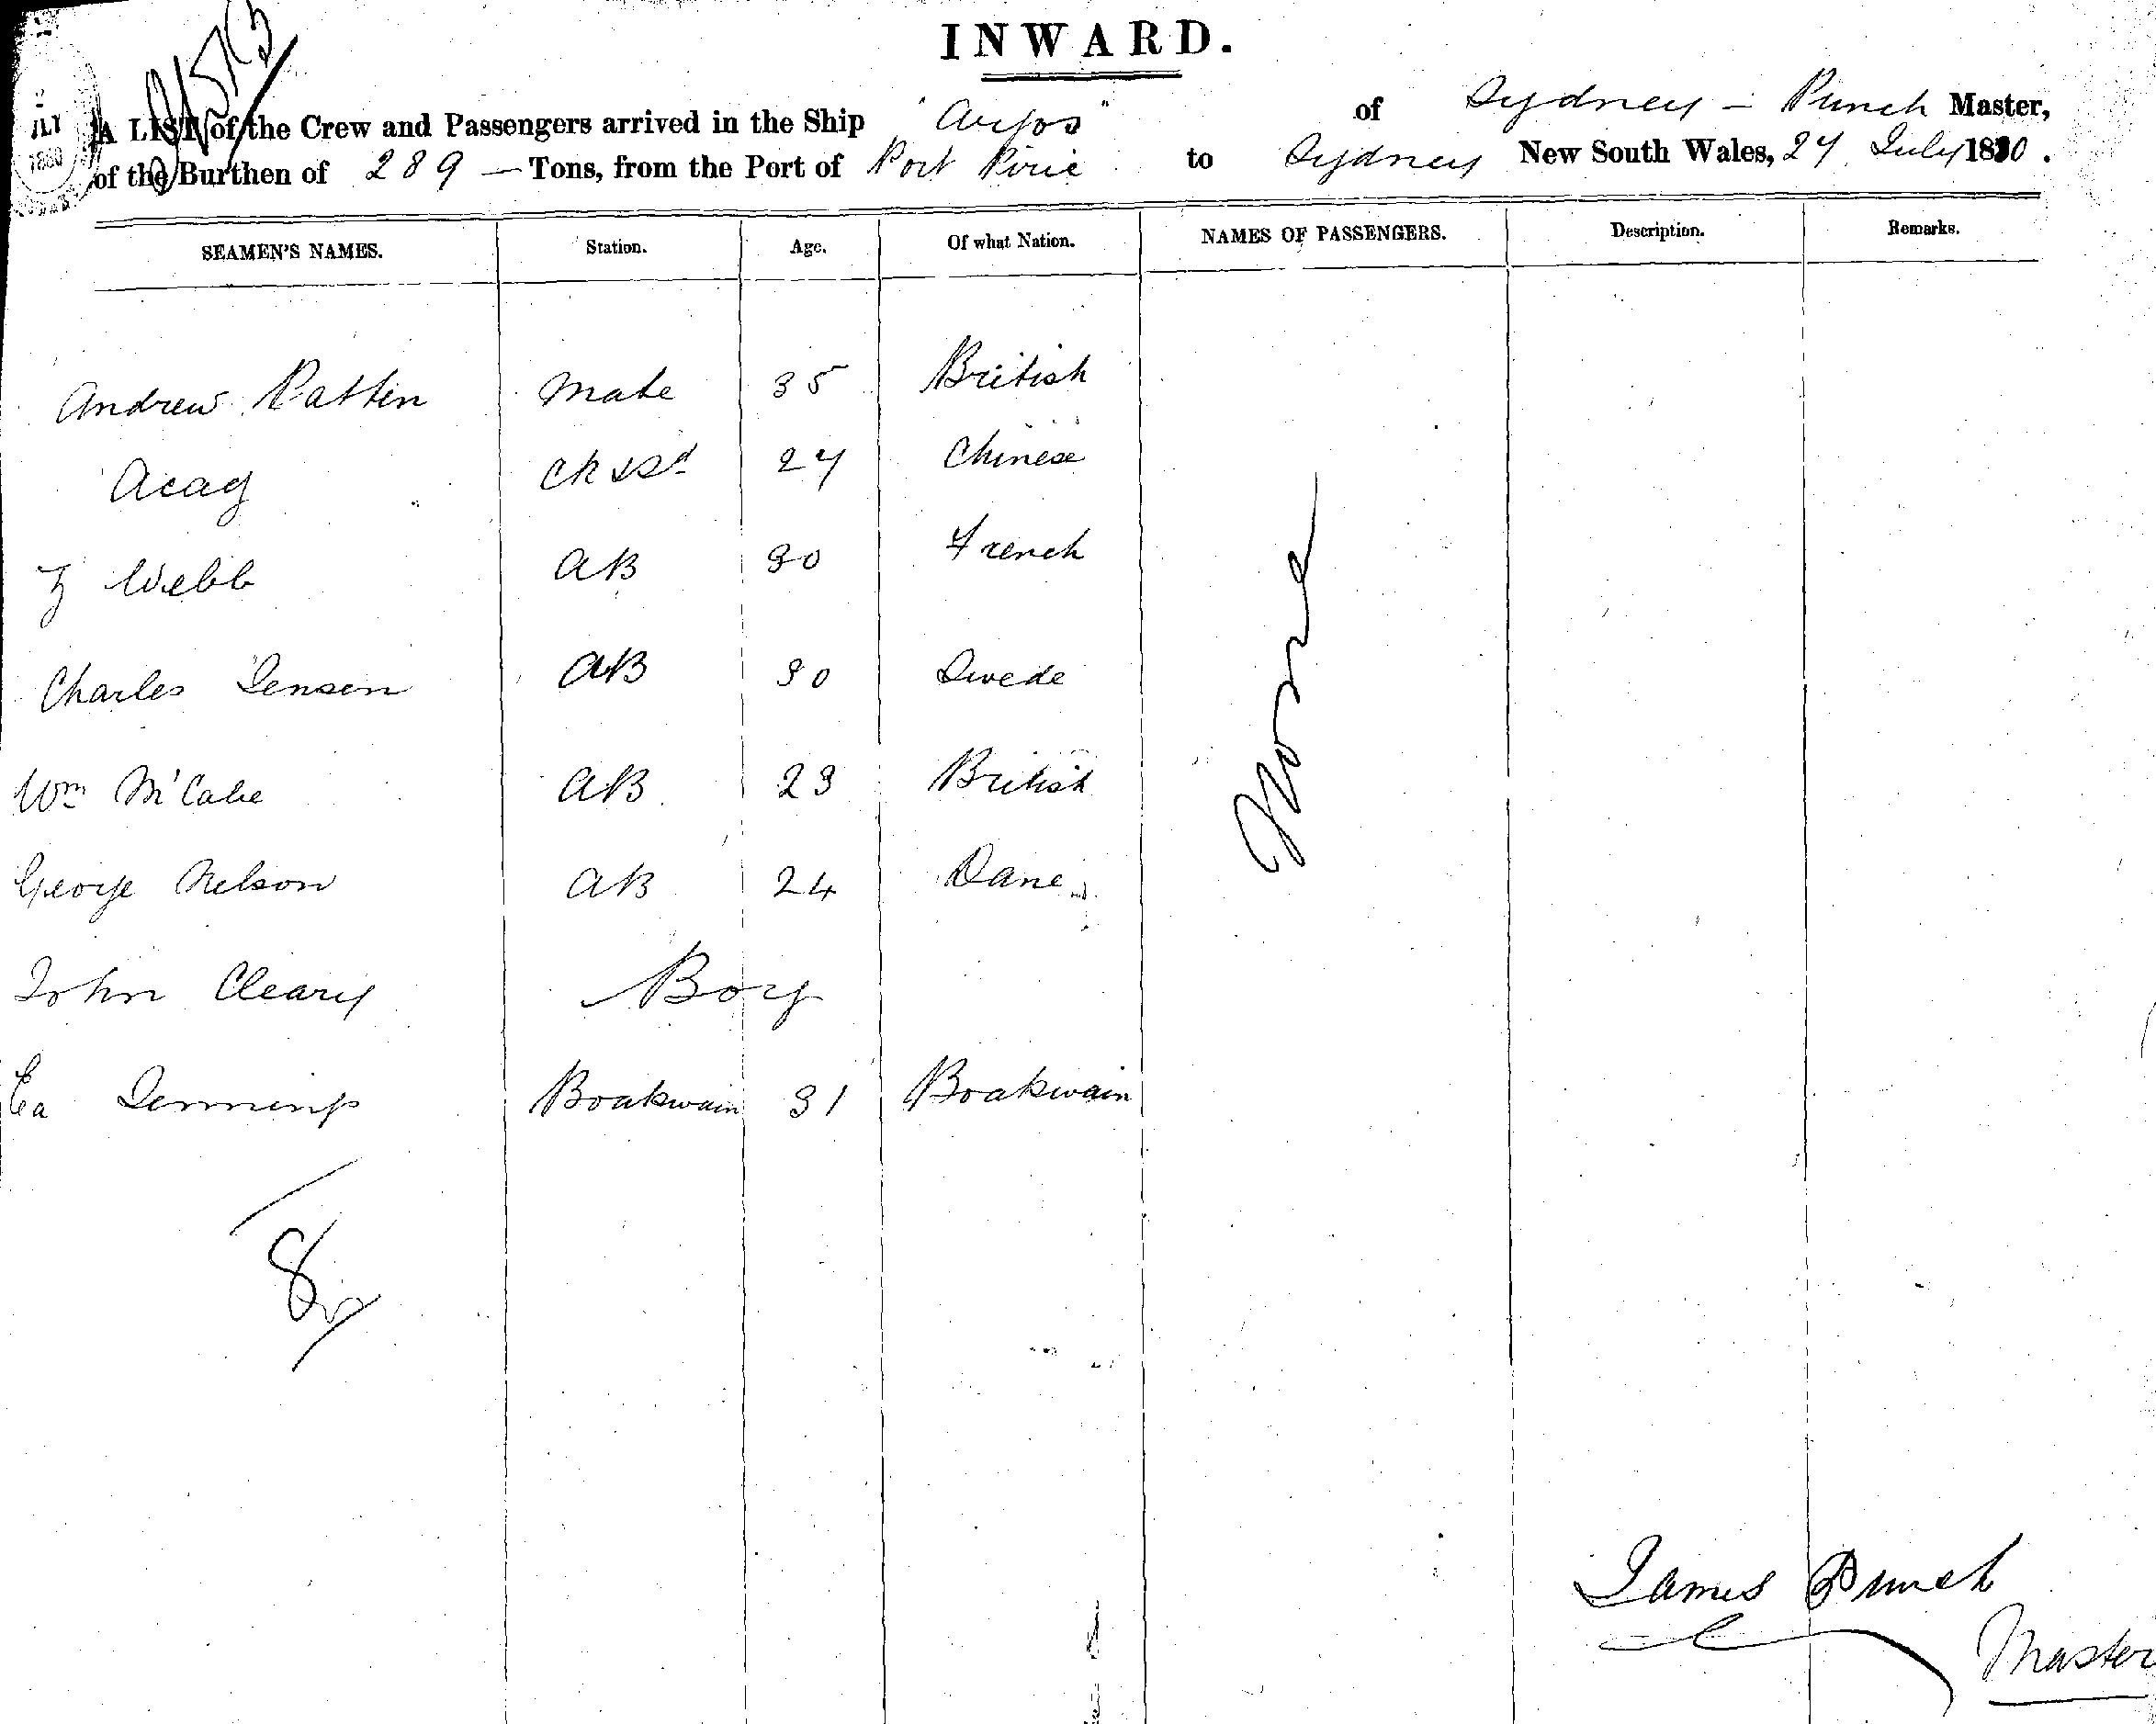 INWARD.
A LIST of the Crew and Passengers arrived in the Ship "Argos" of Sydney – Punch Master,
of the Burthen of 289 – Tons, from the Port of Port Pirie to Sydney New South Wales, 24 July 1880.
SEAMEN'S NAMES. Station. Age. Of what Nation. NAMES OF PASSENGERS. Description. Remarks.
Andrew Pattin Mate 35 British
Acag Ck & Sd 24 Chinese
Webb AB 30 French
Charles Jensen AB 30 Swede
Wm McCabe AB 23 British
George Nelson AB 24 Dane
John Cleary Boy
Jennings Boatswain 31 Boatswain
None
8
James Punch
Master